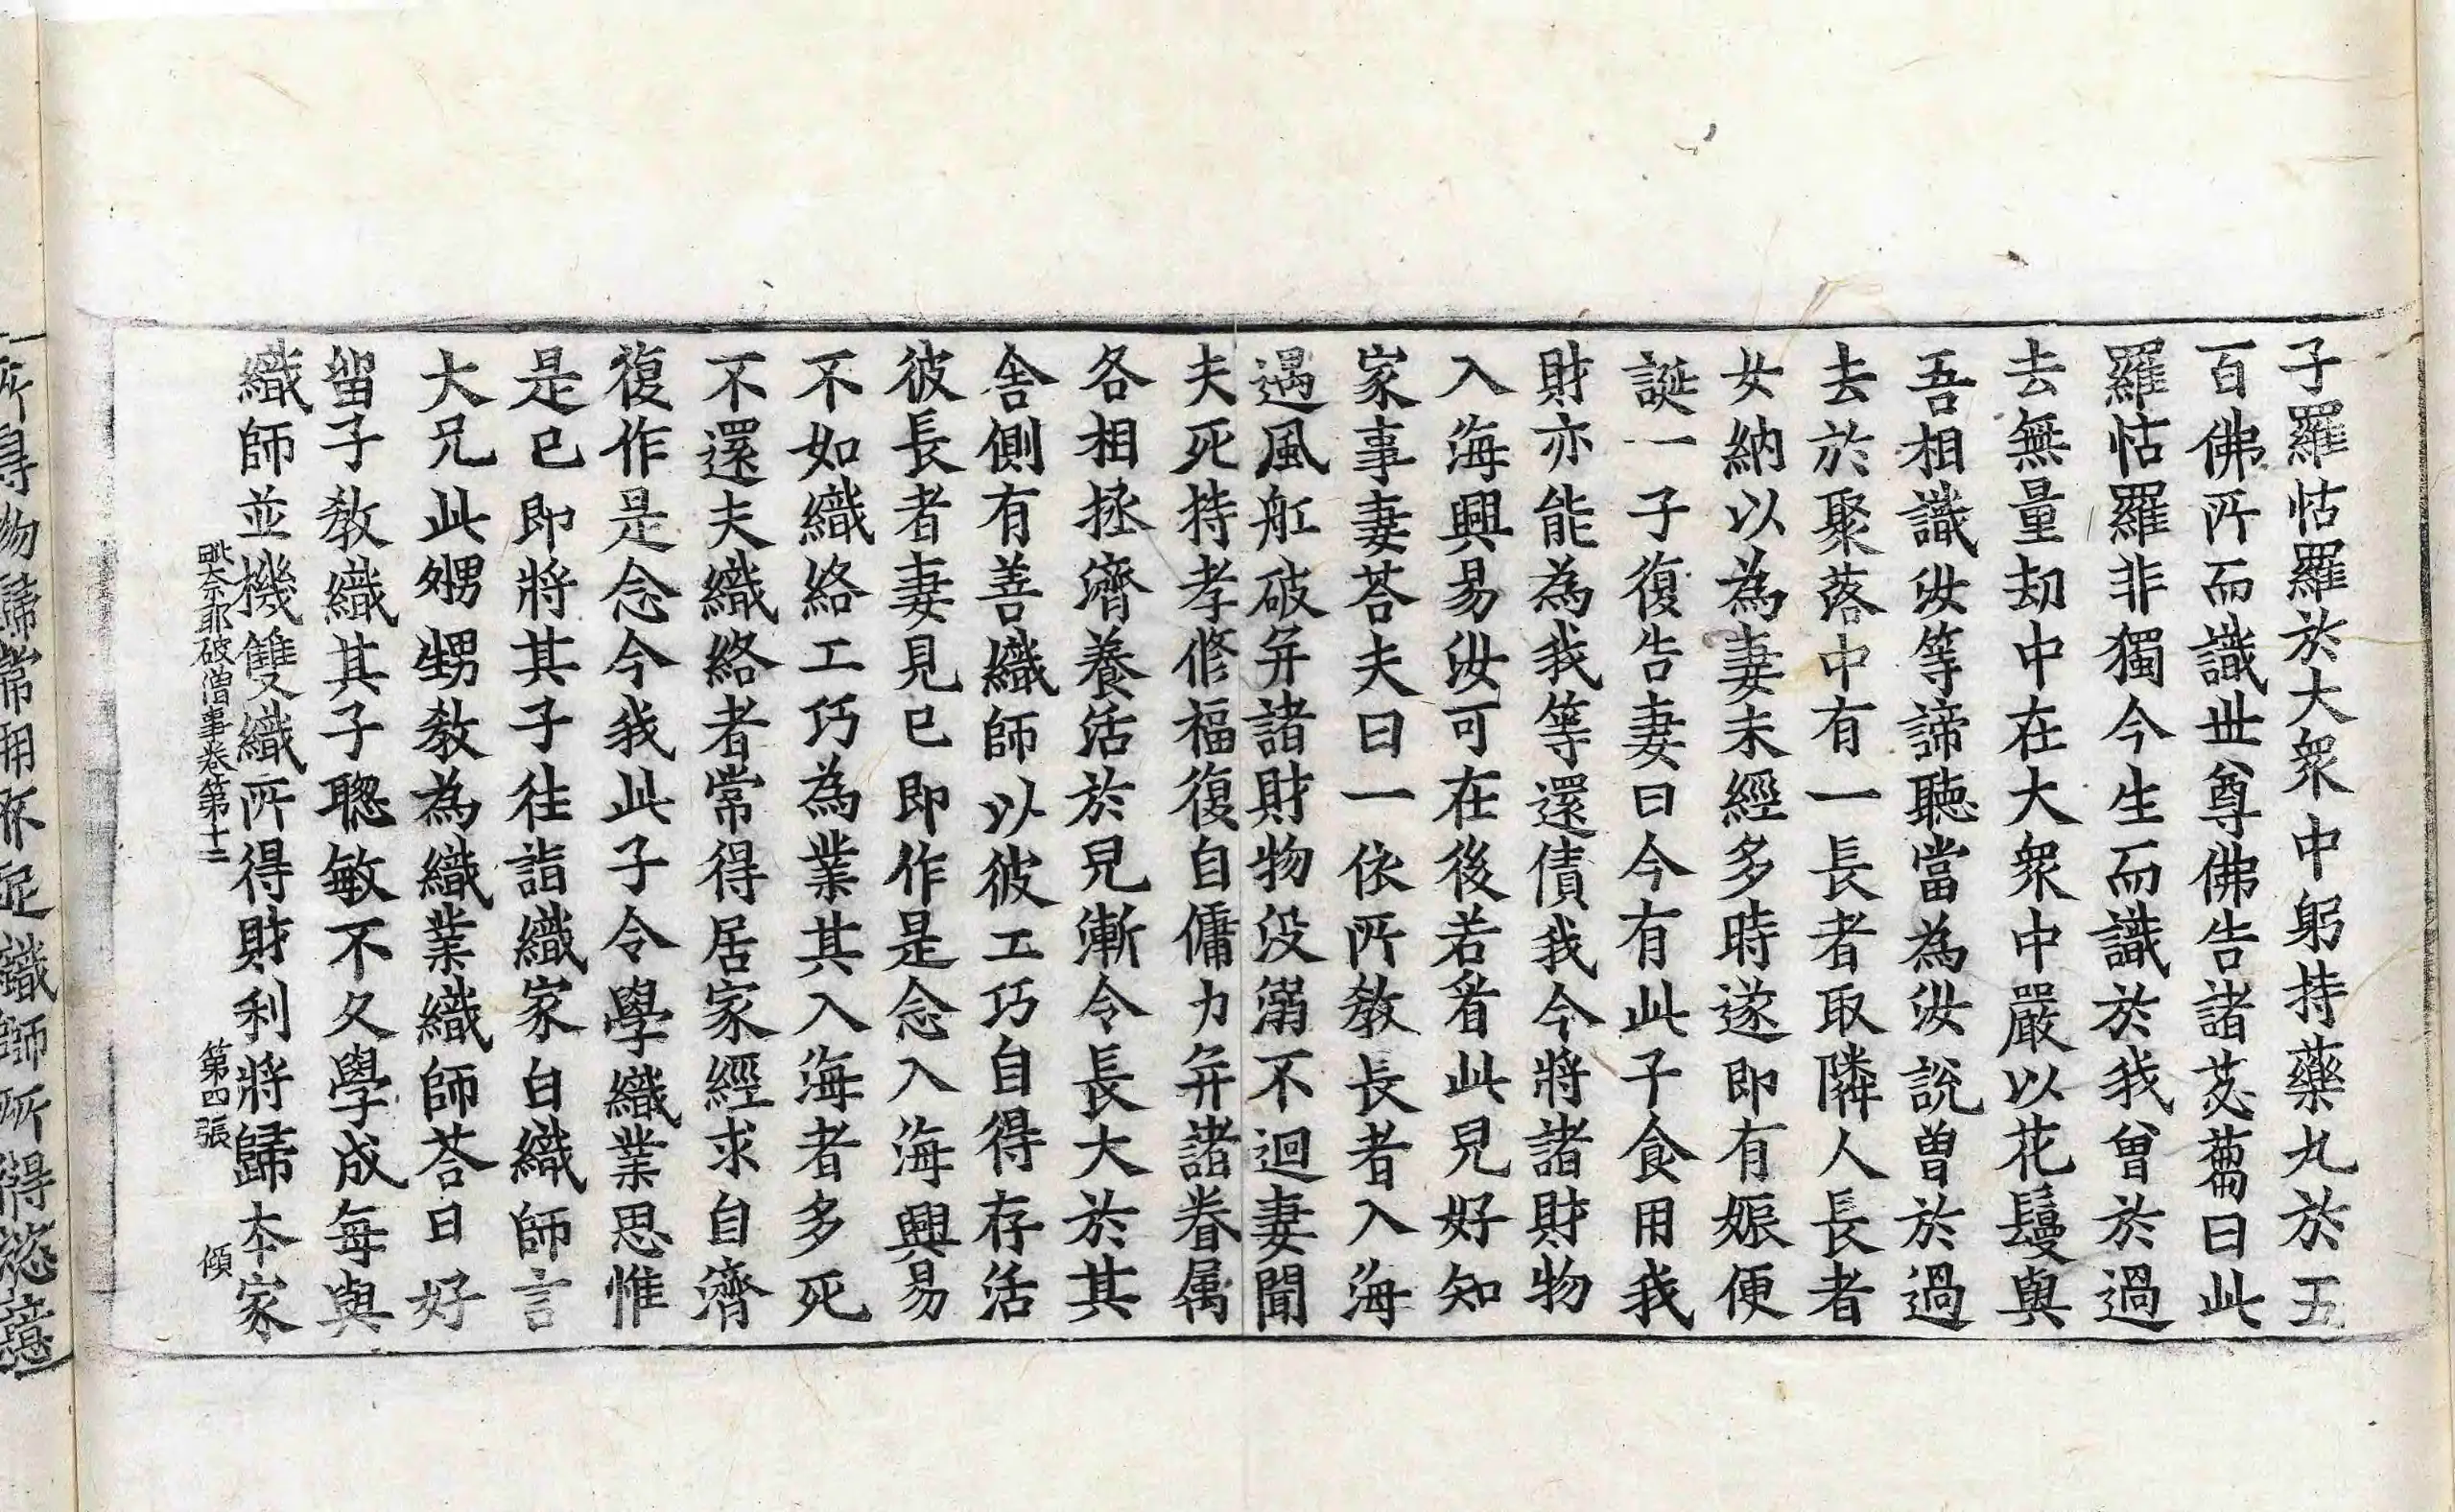 子羅怙羅於大衆中躬持藥丸於五
百佛所而識世尊佛告諸苾蒭曰此
羅怙羅非獨今生而識於我曾於過
去無量劫中在大衆中嚴以花鬘與
吾相識汝等諦聽當為汝說曾於過
去於聚落中有一長者取隣人長者
女納以為妻未經多時遂即有娠便
誕一子復告妻曰今有此子食用我
財亦能為我等還債我今將諸財物
入海興易汝可在後若看此兒好知
家事妻荅夫曰一依所教長者入海
遇風舡破并諸財物没溺不迴妻聞
夫死持孝修福復自傭力并諸眷属
各相拯濟養活於兒漸令長大於其
舍側有善織師以彼工巧自得存活
彼長者妻見已即作是念入海興易
不如織絡工巧為業其入海者多死
不還夫織絡者常得居家經求自濟
復作是念今我此子令學織業思惟
是已即將其子往詣織家白織師言
大兄此甥甥教為織業織師荅曰好
留子教織其子聰敏不久學成每與
織師並機雙織所得財利將歸本家
毗奈耶破僧事卷第十二 第四張 傾
所得物歸常用不足織師所得恣意